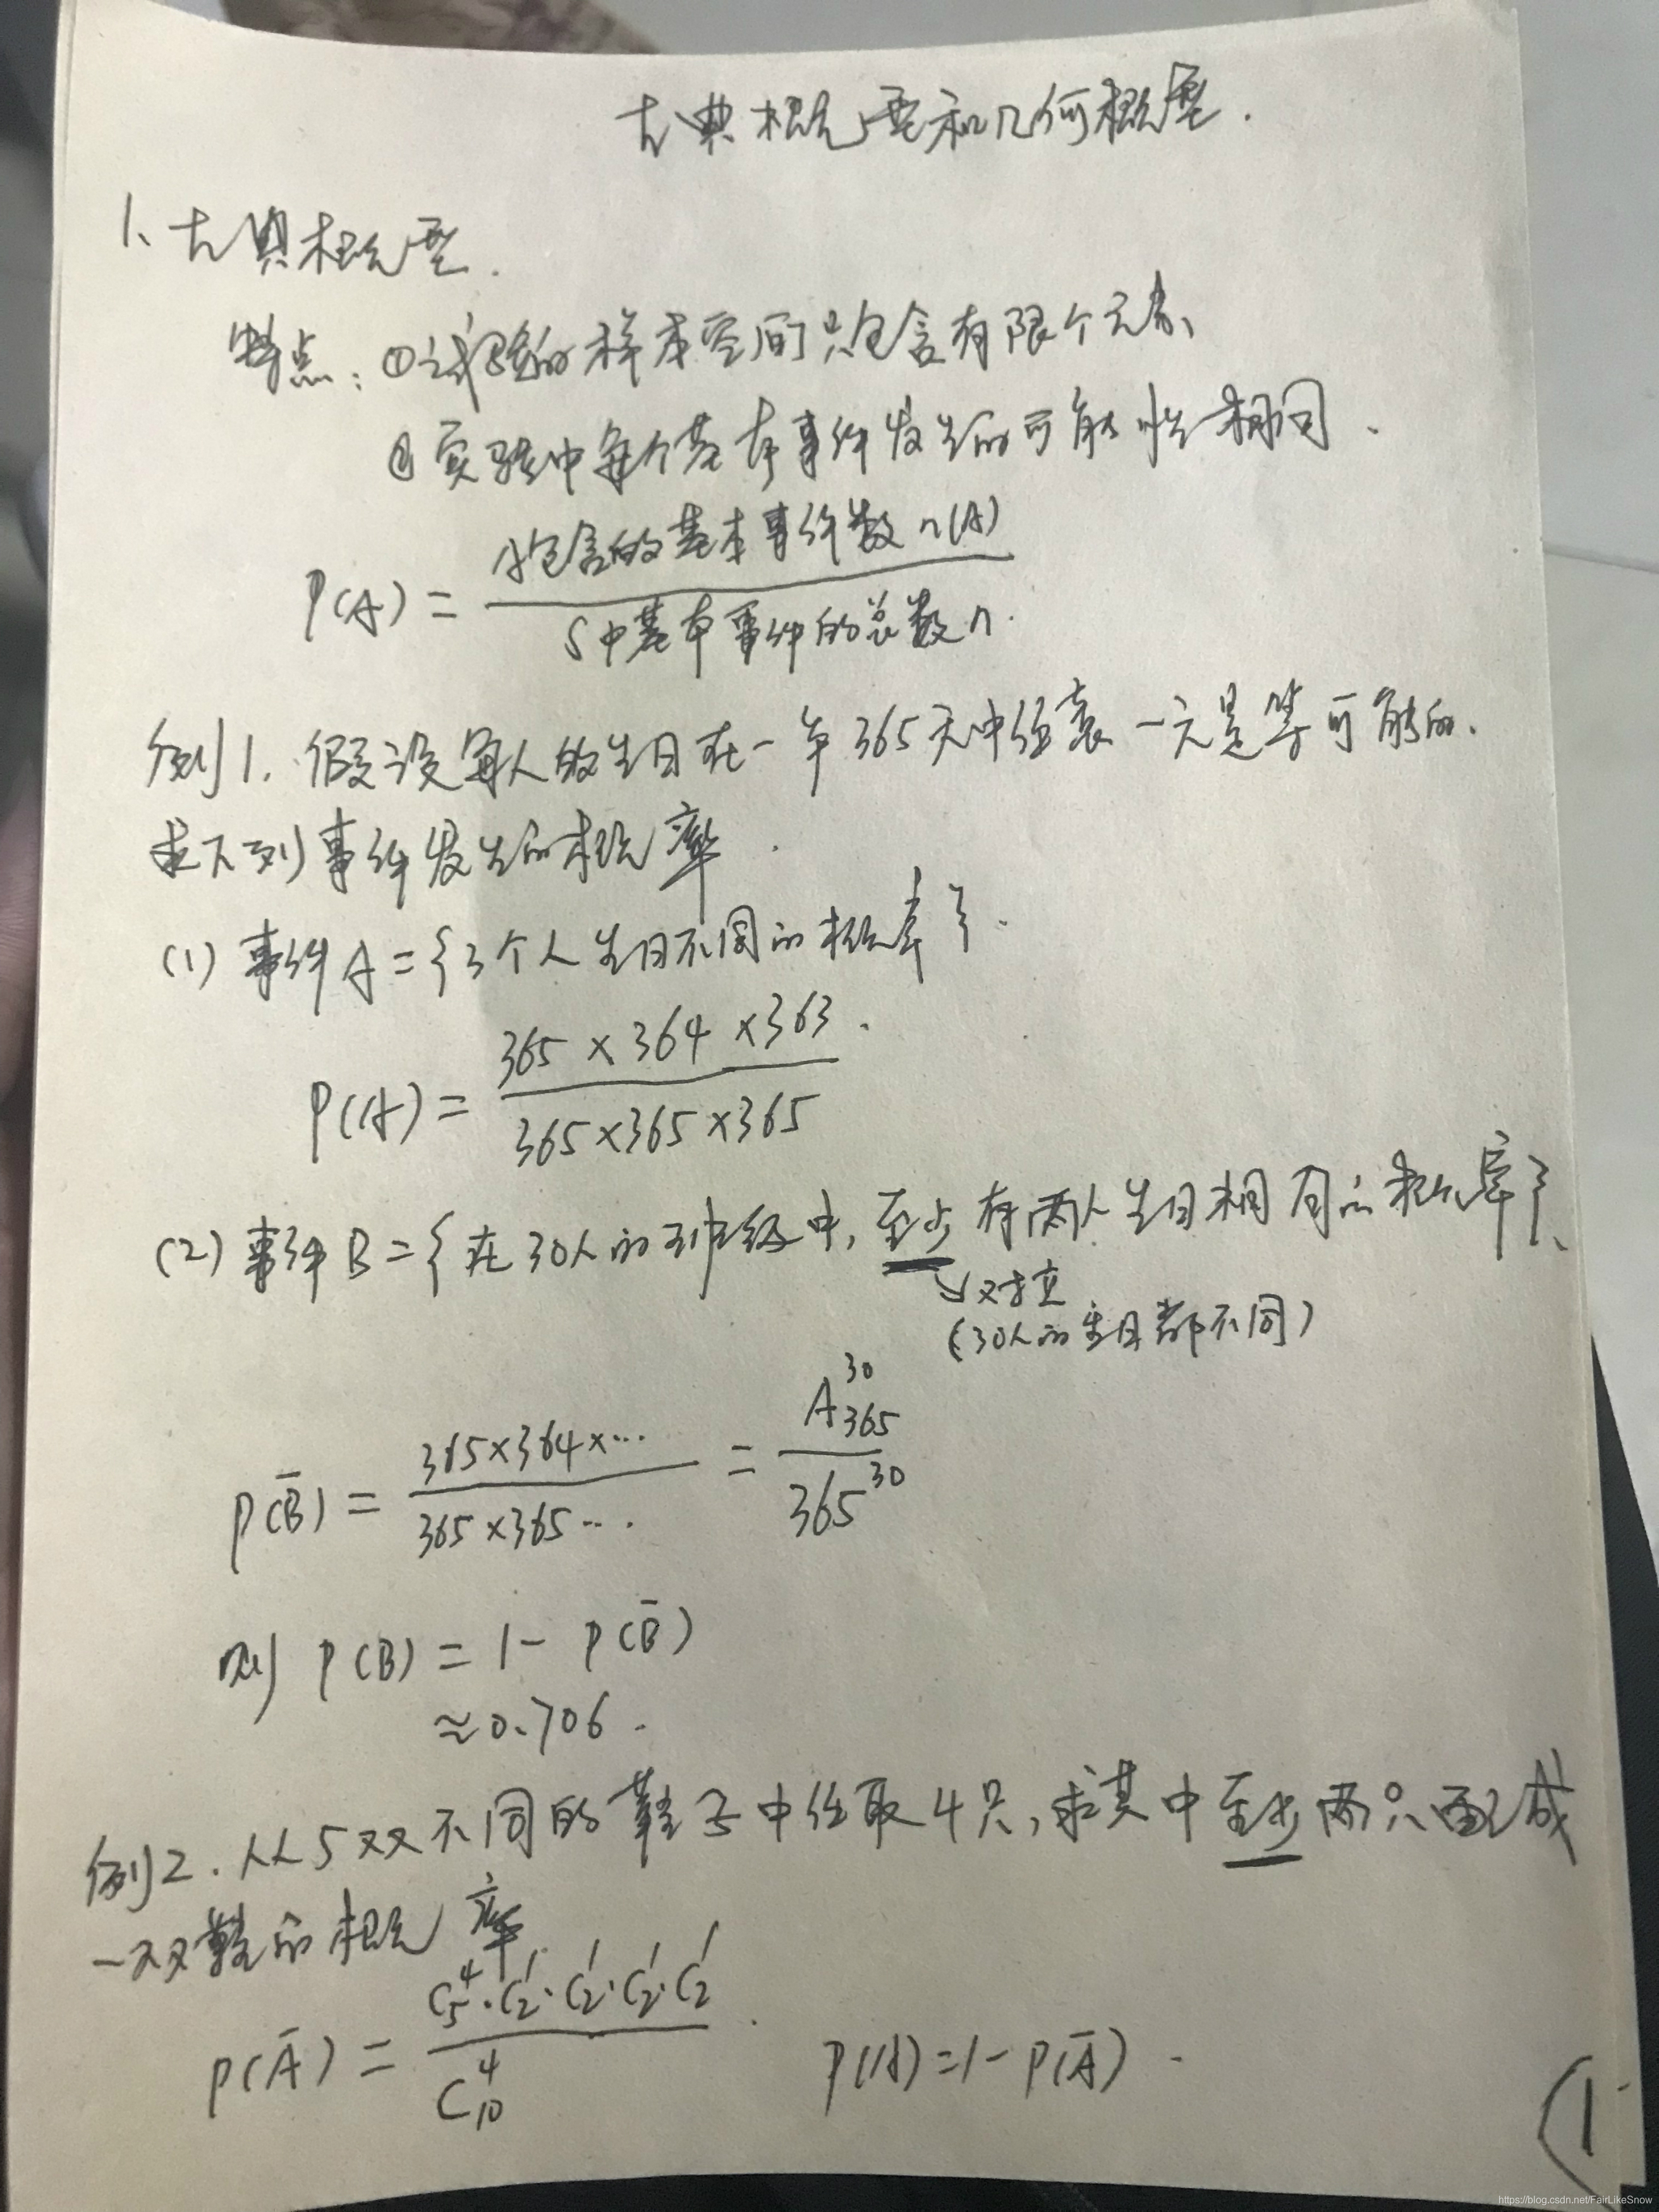 古典概型和几何概型.
1、古典概型.
特点：①试验的样本空间只包含有限个元素、
②实验中每个基本事件发生的可能性相同.
P(A) = A包含的基本事件数n(A) / S中基本事件的总数n.
例1. 假设每人的生日在一年365天中任意一天是等可能的.
求下列事件发生的概率.
(1) 事件A={3个人生日不同的概率}.
P(A) = 365×364×363 / 365×365×365.
(2) 事件B={在30人的班级中,至少有两人生日相同的概率}、
↘对立
(30人的生日都不同)
P(B̄) = 365×364×… / 365×365… = A₃₆₅³⁰ / 365³⁰
则 P(B) = 1- P(B̄)
≈0.706.
例2. 从5双不同的鞋子中任取4只,求其中至少两只配成
一双鞋的概率.
P(Ā) = C₅⁴·C₂¹·C₂¹·C₂¹·C₂¹ / C₁₀⁴. P(A)=1-P(Ā).
(1
https://blog.csdn.net/FairLikeSnow